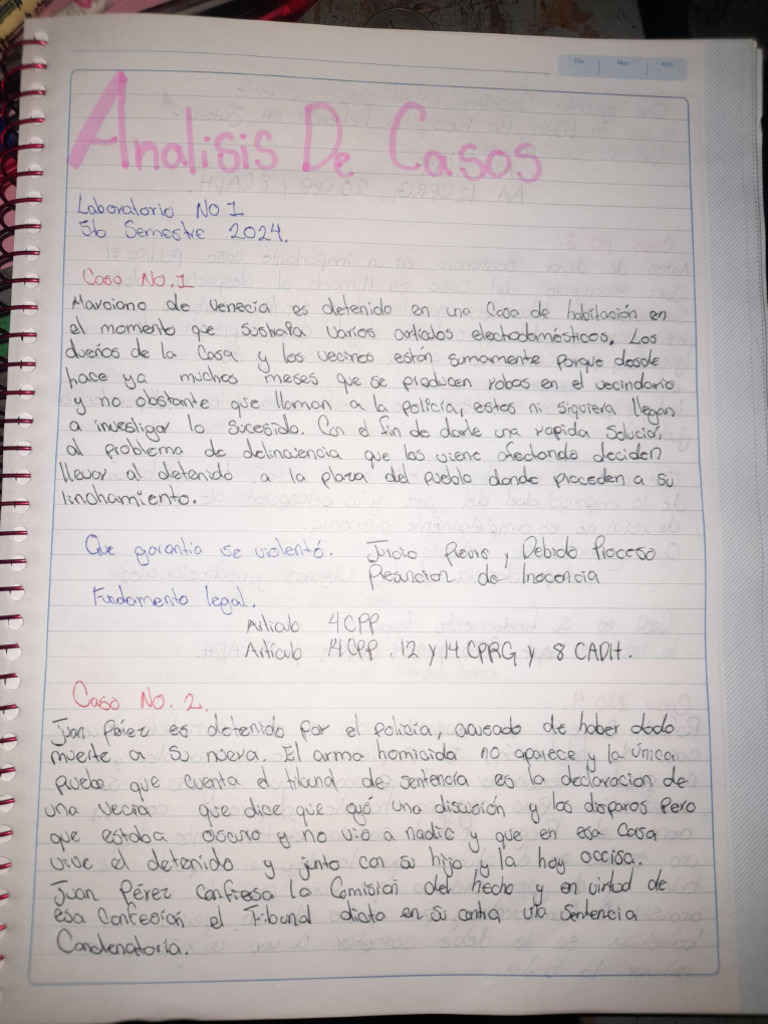 Analisis De Casos
Laboratorio No 1
5to Semestre 2024.
Caso No. 1
Marciano de Venecia es detenido en una Casa de habitación en
el momento que sustraía varios artículos electrodomésticos. Los
dueños de la Casa y los vecinos están sumamente porque desde
hace ya muchos meses que se producen robos en el vecindario
y no obstante que llaman a la policía, estos ni siquiera llegan
a investigar lo sucesido. Con el fin de darle una rapida solución
al problema de delincuencia que los viene afectando deciden
llevar al detenido a la plaza del pueblo donde proceden a su
linchamiento.
Que garantia se violentó. Juicio Previo, Debido Proceso
Presuncion de Inocencia
Fundamento legal.
Articulo 4 CPP
Artículo 14 CPP. 12 y 14 CPRG y 8 CADH.
Caso No. 2.
Juan Pérez es detenido por el policia, acusado de haber dado
muerte a su nuera. El arma homicida no aparece y la única
prueba que cuenta el tribunal de sentencia es la declaracion de
una vecina que dice que oyó una discusión y los disparos Pero
que estaba oscuro y no vio a nadie y que en esa Casa
vive el detenido y junto con su hijo y la hoy occisa.
Juan Pérez confiesa la Comision del hecho y en virtud de
esa Confesion el Tribunal dicta en su contra una Sentencia
Condenatoria.